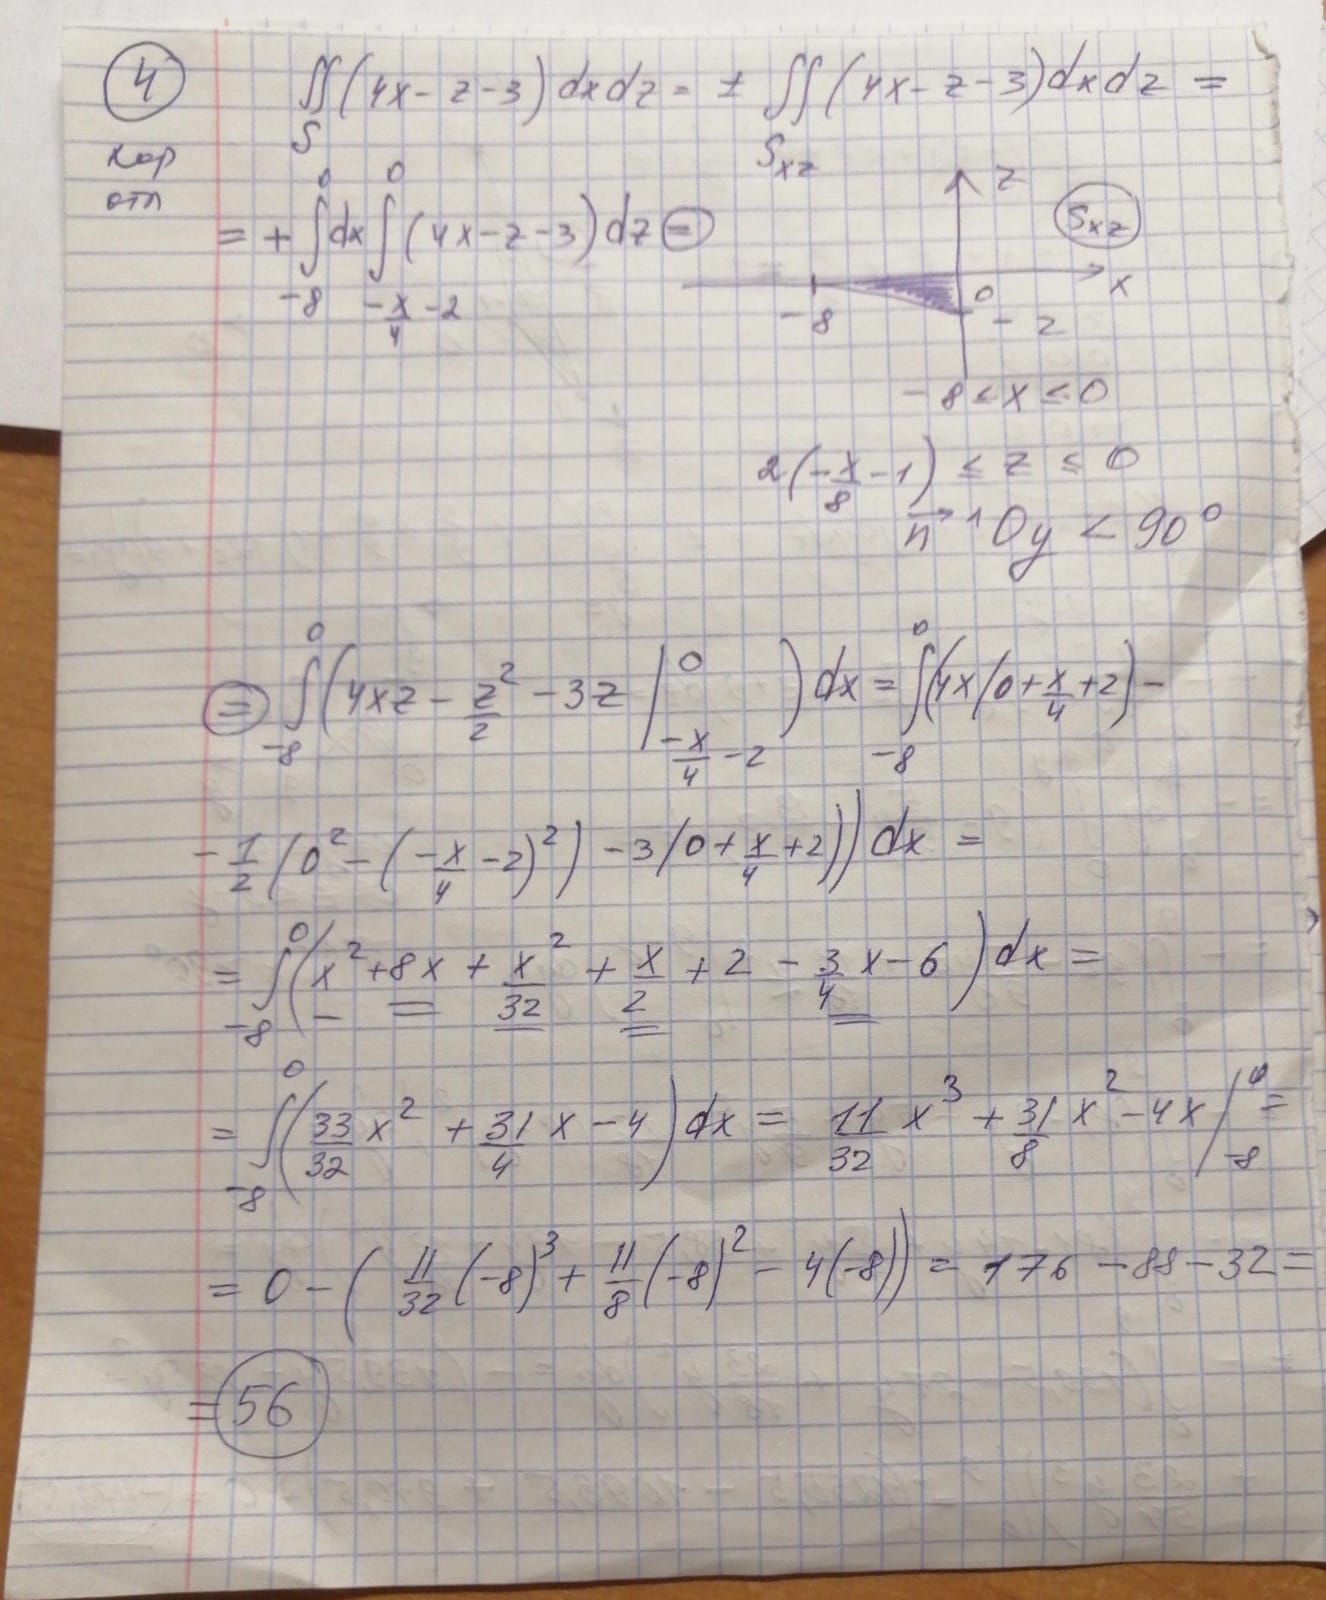 4
∬_S (4x - z - 3) dx dz = ± ∬_{S_{xz}} (4x - z - 3) dx dz =
= + ∫_{-8}^{0} dx ∫_{-x/4 - 2}^{0} (4x - z - 3) dz =
z
S_{xz}
x
-8
0
-2
-8 ≤ x ≤ 0
2(-x/8 - 1) ≤ z ≤ 0
n⃗ ^ Oy < 90°
= ∫_{-8}^{0} (4xz - z²/2 - 3z |_{-x/4 - 2}^{0}) dx = ∫_{-8}^{0} (4x(0 + x/4 + 2) -
- 1/2 (0² - (-x/4 - 2)²) - 3(0 + x/4 + 2)) dx =
= ∫_{-8}^{0} (x² + 8x + x²/32 + x/2 + 2 - 3/4 x - 6) dx =
= ∫_{-8}^{0} (33/32 x² + 31/4 x - 4) dx = 11/32 x³ + 31/8 x² - 4x |_{-8}^{0} =
= 0 - (11/32 (-8)³ + 11/8 (-8)² - 4(-8)) = 176 - 88 - 32 =
= 56